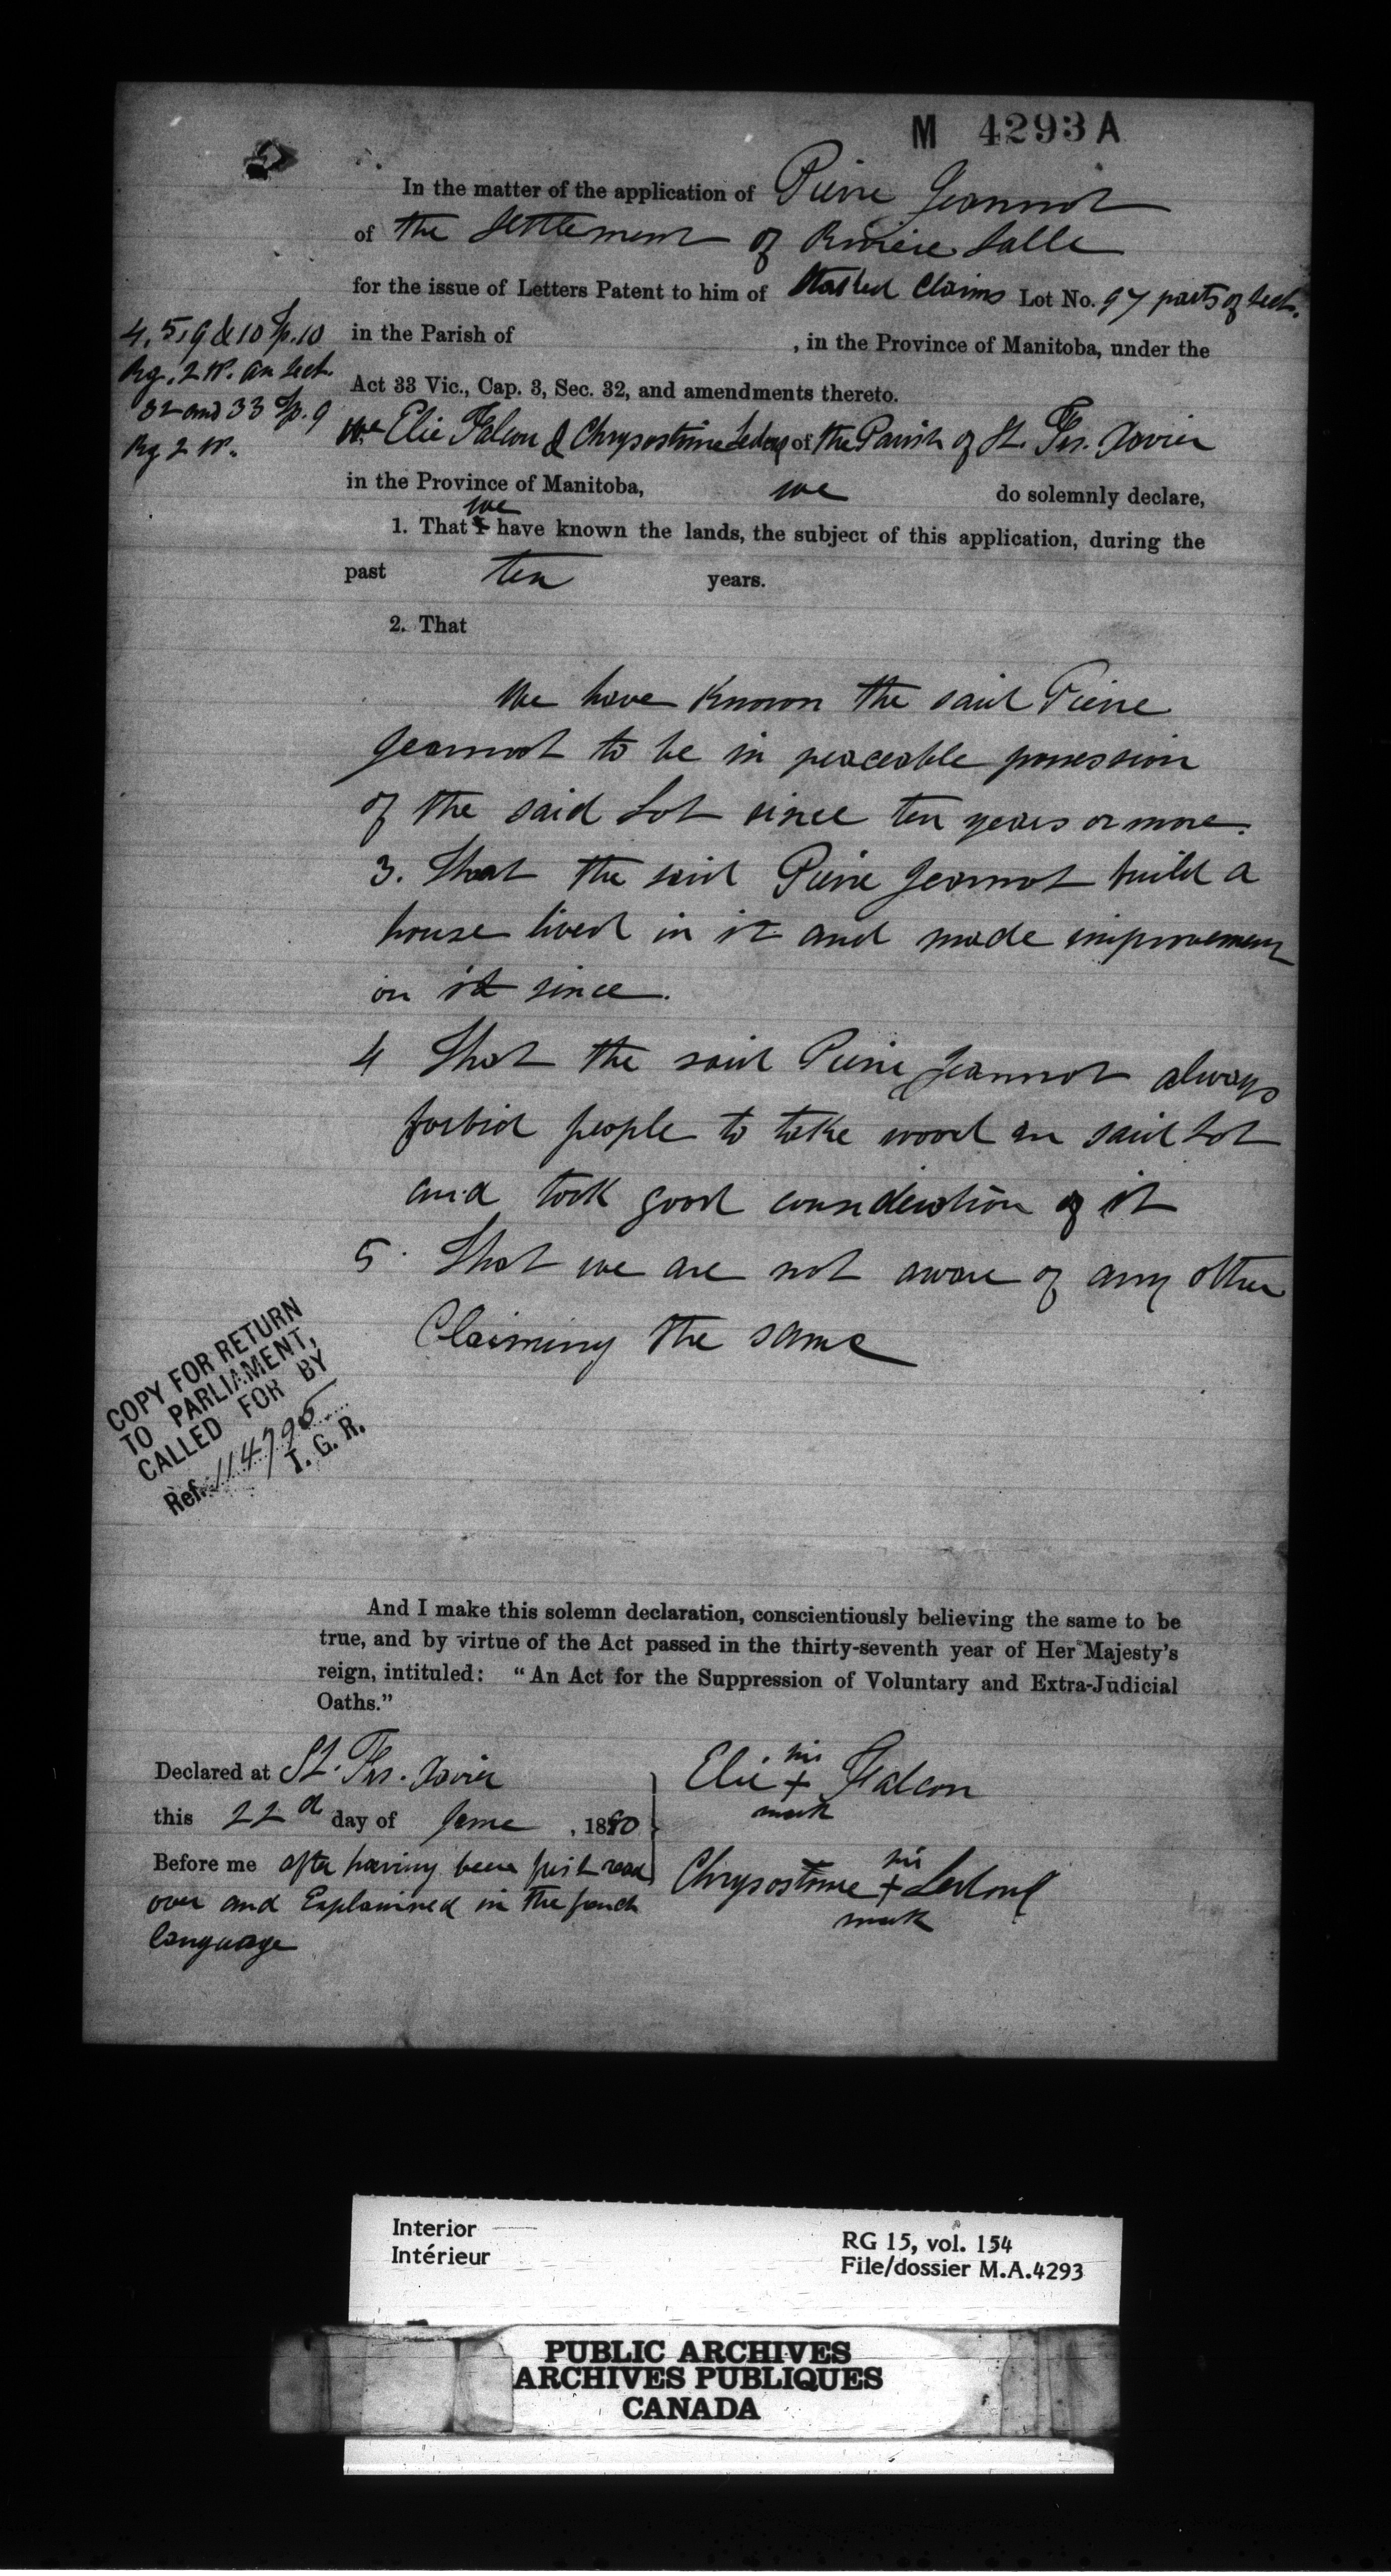 M 4293 A
In the matter of the application of Pierre Jeannot
of the Settlement of Rivière Salle
for the issue of Letters Patent to him of Staked Claims Lot No. 97 parts of Sect.
4, 5, 9 & 10 Tp. 10
Rg. 2 W. an Sect.
32 and 33 Tp. 9
Rg 2 W.
in the Parish of , in the Province of Manitoba, under the
Act 33 Vic., Cap. 3, Sec. 32, and amendments thereto.
We Elie Falcon & Chrysostome Ledoux of the Parish of St. Frs. Xavier
in the Province of Manitoba, we do solemnly declare,
we
1. That I have known the lands, the subject of this application, during the
past ten years.
2. That
We have Known the said Pierre
Jeannot to be in peaceable possession
of the said Lot since ten years or more.
3. That the said Pierre Jeannot build a
house lived in it and made improvement
on it since.
4 That the said Pierre Jeannot always
forbid people to take wood on said Lot
and took good consideration of it
5 That we are not aware of any other
Claiming the same
COPY FOR RETURN
TO PARLIAMENT,
CALLED FOR BY
Ref. 114795
T. G. R.
And I make this solemn declaration, conscientiously believing the same to be
true, and by virtue of the Act passed in the thirty-seventh year of Her Majesty's
reign, intituled: "An Act for the Suppression of Voluntary and Extra-Judicial
Oaths."
Declared at St. Frs. Xavier
this 22d day of June , 1880
Before me after having been first read
over and Explained in the french
language
Elie his + Falcon
mark
Chrysostome his + Ledoux
mark
Interior
Intérieur
RG 15, vol. 154
File/dossier M.A.4293
PUBLIC ARCHIVES
ARCHIVES PUBLIQUES
CANADA